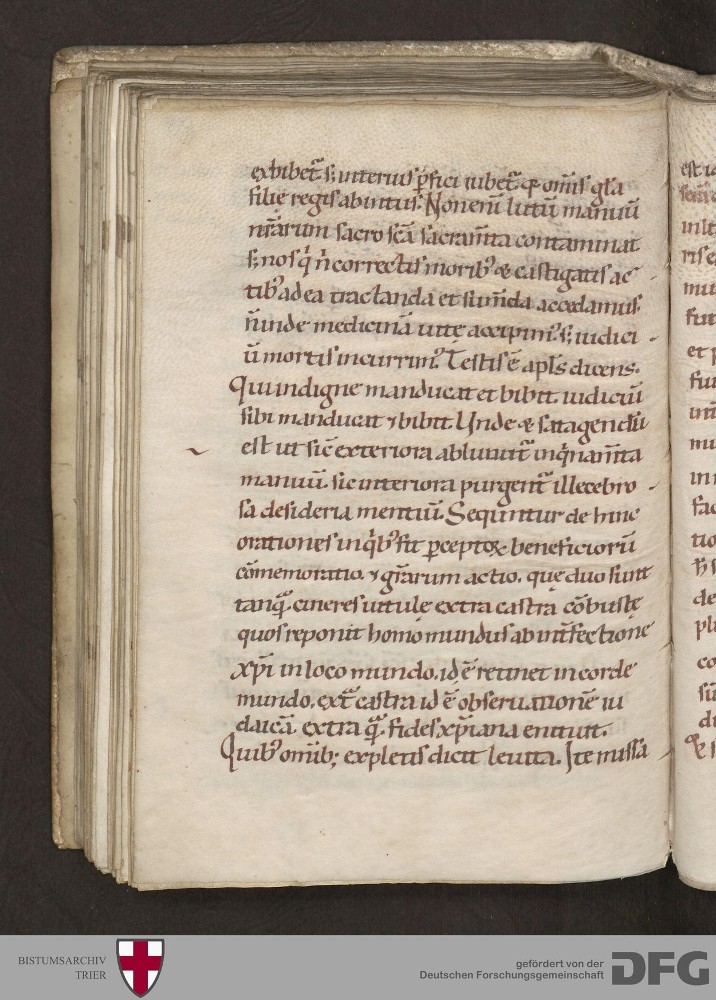 exhibet᷑ s; interius ꝑfici iubet᷑. q; om̅is gl̅a
filie regis ab intus. Non eni̅ lutu̅ manuu̅
nr̅arum sacro sc̅a sacram̅ta contaminat
s; nos q̍ n̅ correctis morib᾽ & castigatis ac
tib᾽ ad ea tractanda et sum̅da accedamus.
n̅ inde medicina̅ uitę accipim᾽. s; iudici
u̅ mortis incurrim᾽. Testis e̅ apl̅s dicens.
Qui indigne manducat et bibit. iudiciu̅
sibi manducat ⁊ bibit. Unde & satagendu̅
est ut sic̅ exteriora abluunt᷑ inq̍nam̅ta
manuu̅. sic interiora purgent᷑ illecebro
sa desideria mentiu̅. Sequntur de hinc
orationes in q̍b᾽ fit ꝑceptoꝝ beneficioru̅
co̅memoratio. ⁊ gr̅arum actio. quę duo sunt
tanq̃. cineres uitulę extra castra co̅bustę
quos reponit homo mundus ab int̅fectione
xp̅i in loco mundo. id e̅ retinet in corde
mundo. ext᷑ castra id e̅ obseruatione̅ iu
daica̅. extra q̃. fides xp̅iana enituit.
Quib᾽ om̅ib; expletis dicit leuita. Ite missa
est
et
BISTUMSARCHIV
TRIER
gefördert von der
Deutschen Forschungsgemeinschaft
DFG